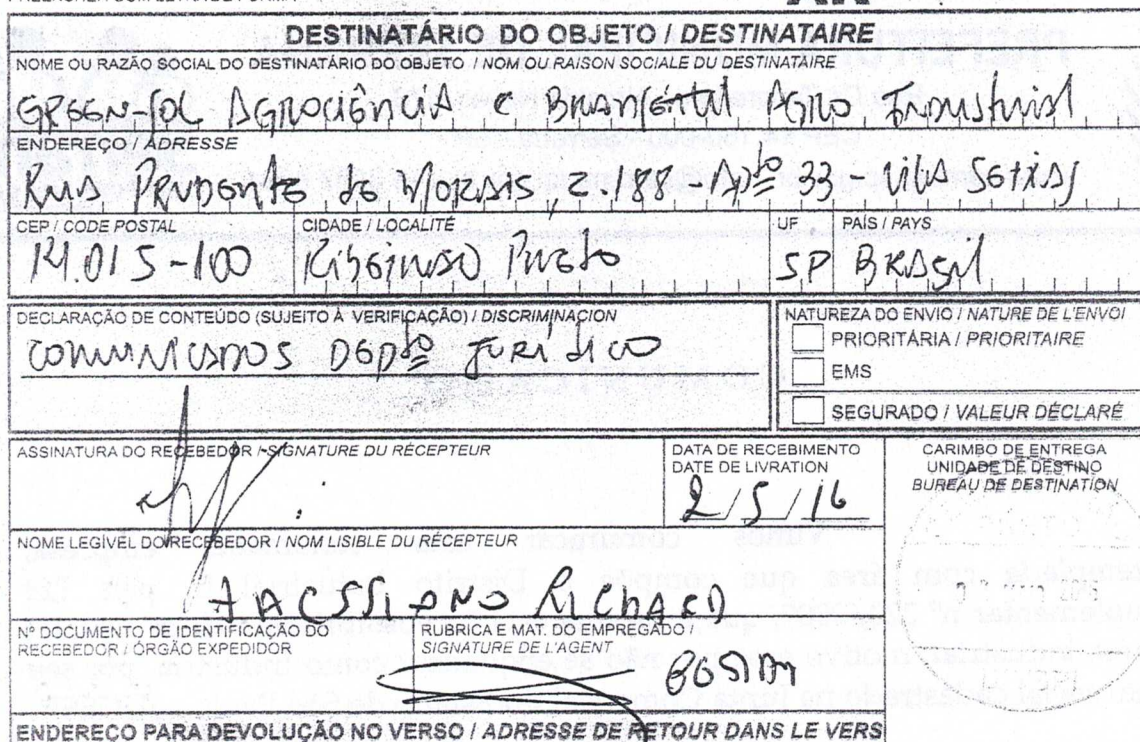 AR
DESTINATÁRIO DO OBJETO / DESTINATAIRE
NOME OU RAZÃO SOCIAL DO DESTINATÁRIO DO OBJETO / NOM OU RAISON SOCIALE DU DESTINATAIRE
GREEN-SOL AGROCIÊNCIA e Industrial
ENDEREÇO / ADRESSE
RUA PRUDENTE de MORAIS, 2.188 Apto 33 Vila Seixas
CEP / CODE POSTAL CIDADE / LOCALITÉ UF PAÍS / PAYS
14.015-100 Ribeirão Preto SP BRASIL
DECLARAÇÃO DE CONTEÚDO (SUJEITO À VERIFICAÇÃO) / DISCRIMINACION
COMUNICADOS Depto JURÍDICO
NATUREZA DO ENVIO / NATURE DE L'ENVOI
PRIORITÁRIA / PRIORITAIRE
EMS
SEGURADO / VALEUR DÉCLARÉ
ASSINATURA DO RECEBEDOR / SIGNATURE DU RÉCEPTEUR
DATA DE RECEBIMENTO
DATE DE LIVRATION
2/5/16
CARIMBO DE ENTREGA
UNIDADE DE DESTINO
BUREAU DE DESTINATION
NOME LEGÍVEL DO RECEBEDOR / NOM LISIBLE DU RÉCEPTEUR
RICHARD
Nº DOCUMENTO DE IDENTIFICAÇÃO DO
RECEBEDOR / ÓRGÃO EXPEDIDOR
RUBRICA E MAT. DO EMPREGADO /
SIGNATURE DE L'AGENT
ENDEREÇO PARA DEVOLUÇÃO NO VERSO / ADRESSE DE RETOUR DANS LE VERS